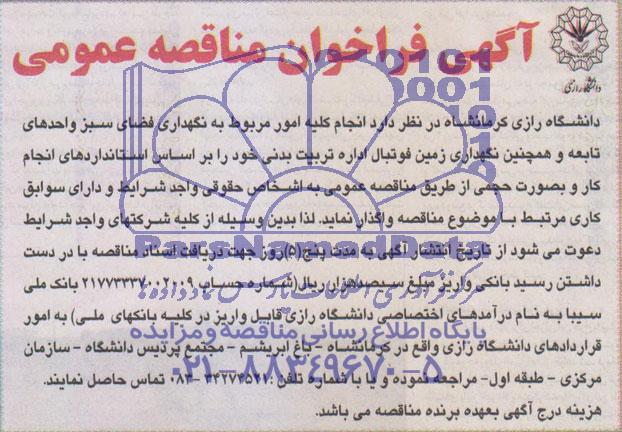 آگهی فراخوان مناقصه عمومی
دانشگاه رازی
دانشگاه رازی کرمانشاه در نظر دارد انجام کلیه امور مربوط به نگهداری فضای سبز واحدهای
تابعه و همچنین نگهداری زمین فوتبال اداره تربیت بدنی خود را بر اساس استانداردهای انجام
کار و بصورت حجمی از طریق مناقصه عمومی به اشخاص حقوقی واجد شرایط و دارای سوابق
کاری مرتبط با موضوع مناقصه واگذار نماید. لذا بدین وسیله از کلیه شرکتهای واجد شرایط
دعوت می شود از تاریخ انتشار آگهی به مدت پنج(۵)روز جهت دریافت اسناد مناقصه با در دست
داشتن رسید بانکی واریز مبلغ سیصدهزار ریال(شماره حساب ۲۱۷۷۳۳۳۷۰۰۲۰۰۹ بانک ملی
سیبا به نام درآمدهای اختصاصی دانشگاه رازی قابل واریز در کلیه بانکهای ملی) به امور
قراردادهای دانشگاه رازی واقع در کرمانشاه - باغ ابریشم - مجتمع پردیس دانشگاه - سازمان
مرکزی - طبقه اول- مراجعه نموده و یا با شماره تلفن :۳۴۲۷۴۵۷۱-۰۸۳ تماس حاصل نمایند.
هزینه درج آگهی بعهده برنده مناقصه می باشد.
ParsNamadData
مرکز فرآوری اطلاعات پارس نماد داده ها
پایگاه اطلاع رسانی مناقصه و مزایده
۰۲۱-۸۸۳۴۹۶۷۰-۵